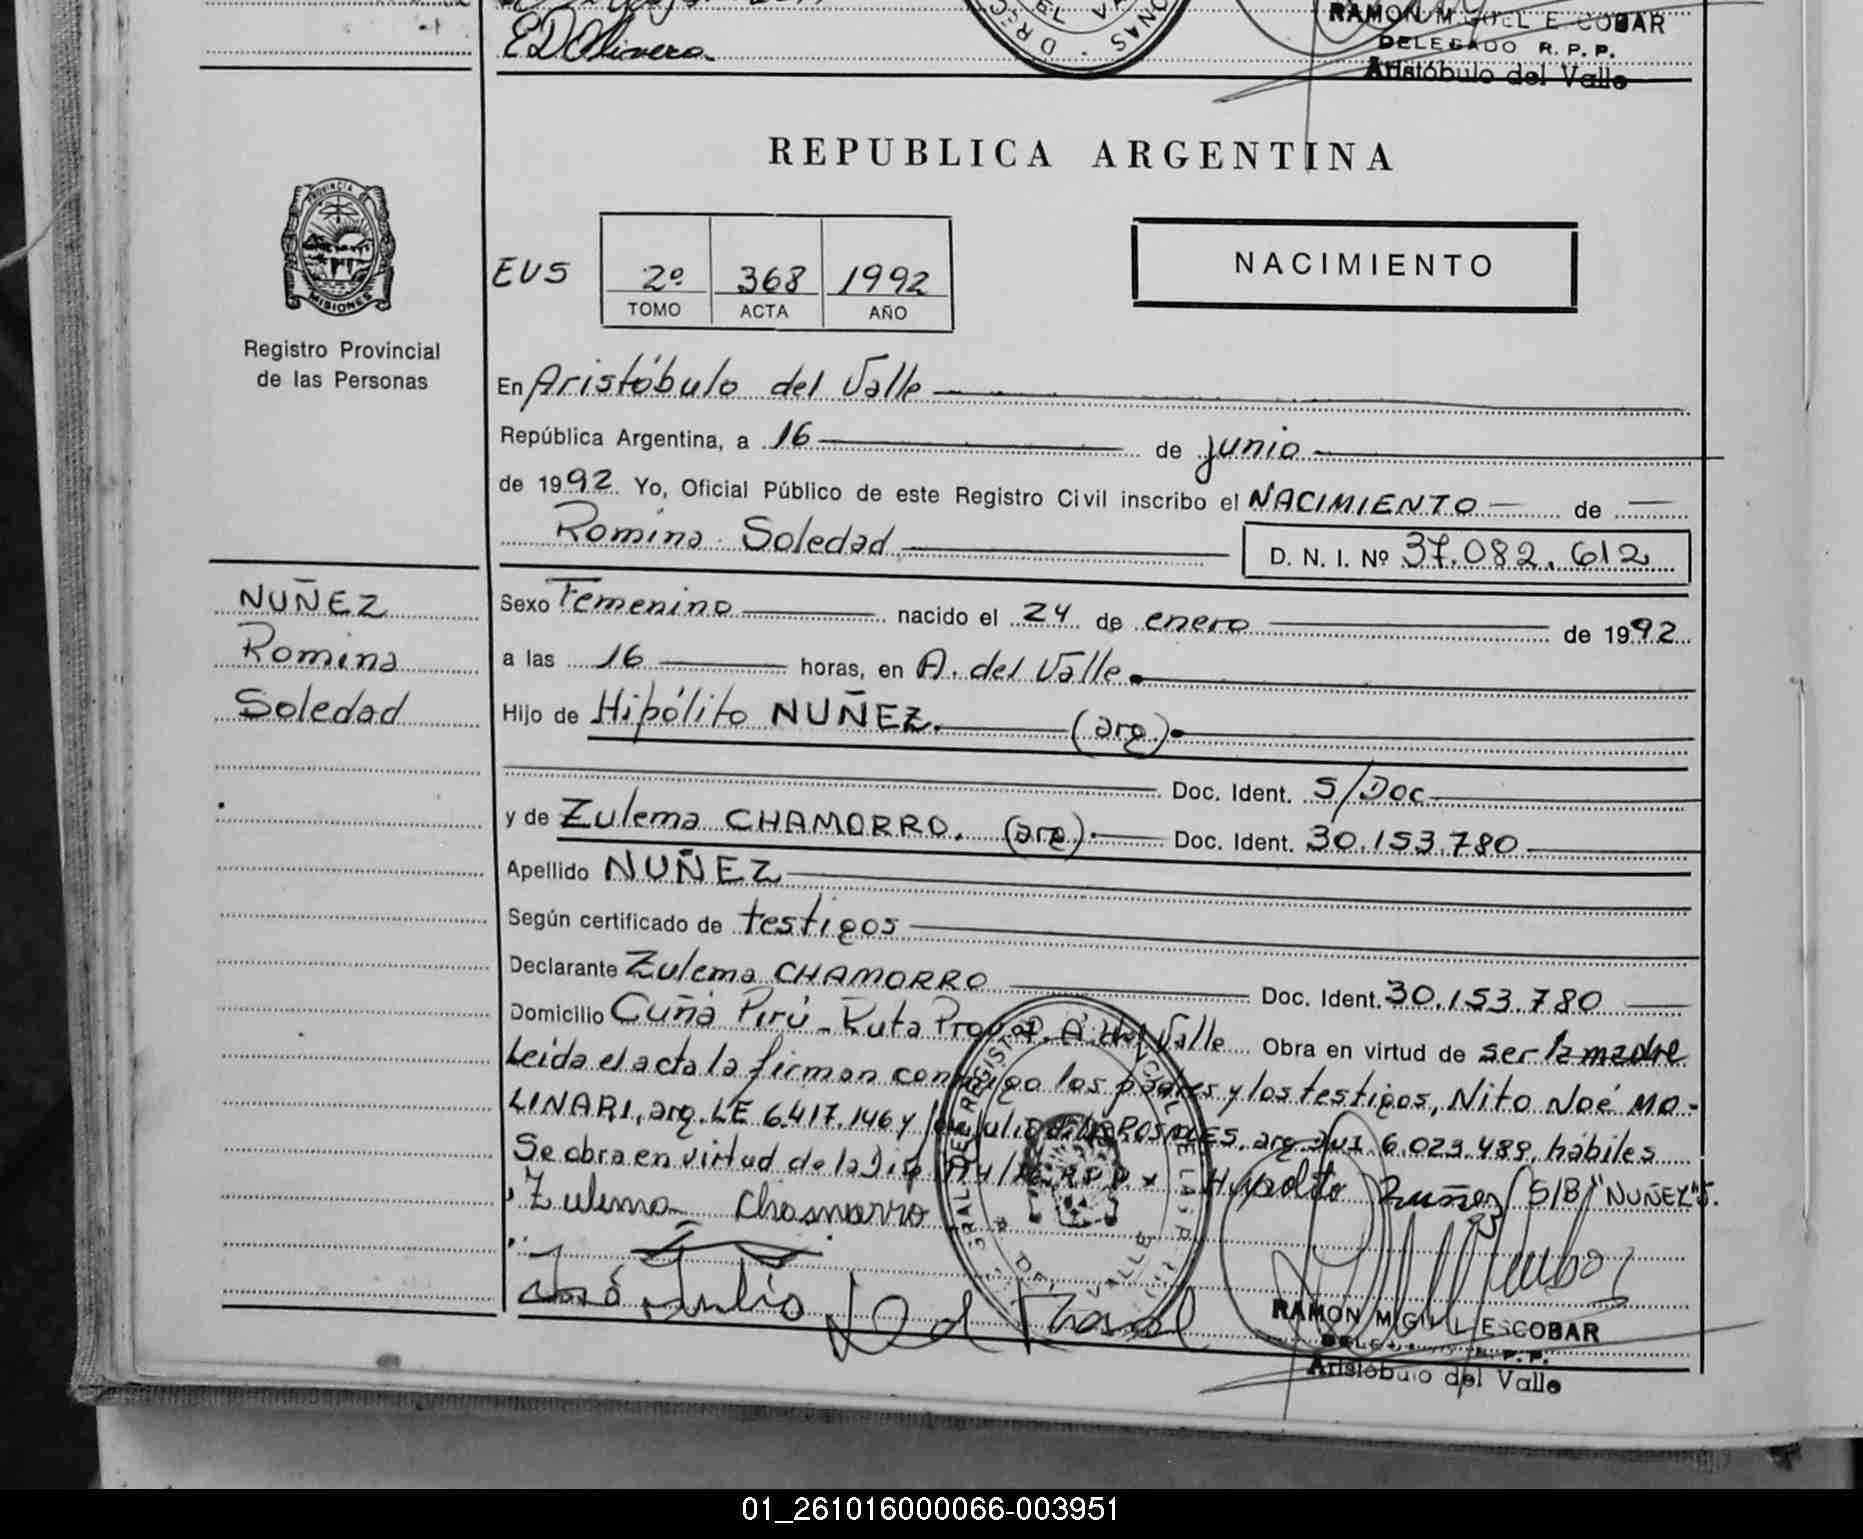 EDOlivera.
RAMON MIGUEL ESCOBAR
DELEGADO R. P. P.
Aristóbulo del Valle
REPUBLICA ARGENTINA
PROVINCIA DE
MISIONES
Registro Provincial
de las Personas
EUS 2º 368 1992
TOMO ACTA AÑO
NACIMIENTO
En Aristóbulo del Valle
República Argentina, a 16 de junio
de 1992 Yo, Oficial Público de este Registro Civil inscribo el NACIMIENTO de
Romina Soledad D. N. I. Nº 37.082.612
NUÑEZ
Romina
Soledad
Sexo Femenino nacido el 24 de enero de 1992
a las 16 horas, en A. del Valle
Hijo de Hipólito NUÑEZ. (arg)
Doc. Ident. S/Doc
y de Zulema CHAMORRO. (arg) Doc. Ident. 30.153.780
Apellido NUÑEZ
Según certificado de testigos
Declarante Zulema CHAMORRO Doc. Ident. 30.153.780
Domicilio Cuña Pirú - Ruta A. del Valle Obra en virtud de ser la madre
Leida el acta la firman conmigo los padres y los testigos, Nito Noé MO-
LINARI, arg. LE 6.417.146 y ROSALES, arg. 6.023.489, hábiles
Se obra en virtud de la Disp.
Zulema Chamorro Hipolito Nuñez S/B/"NUÑEZ"
José Julio
RAMON MIGUEL ESCOBAR
DELEGADO R. P. P.
Aristóbulo del Valle
01_261016000066-003951